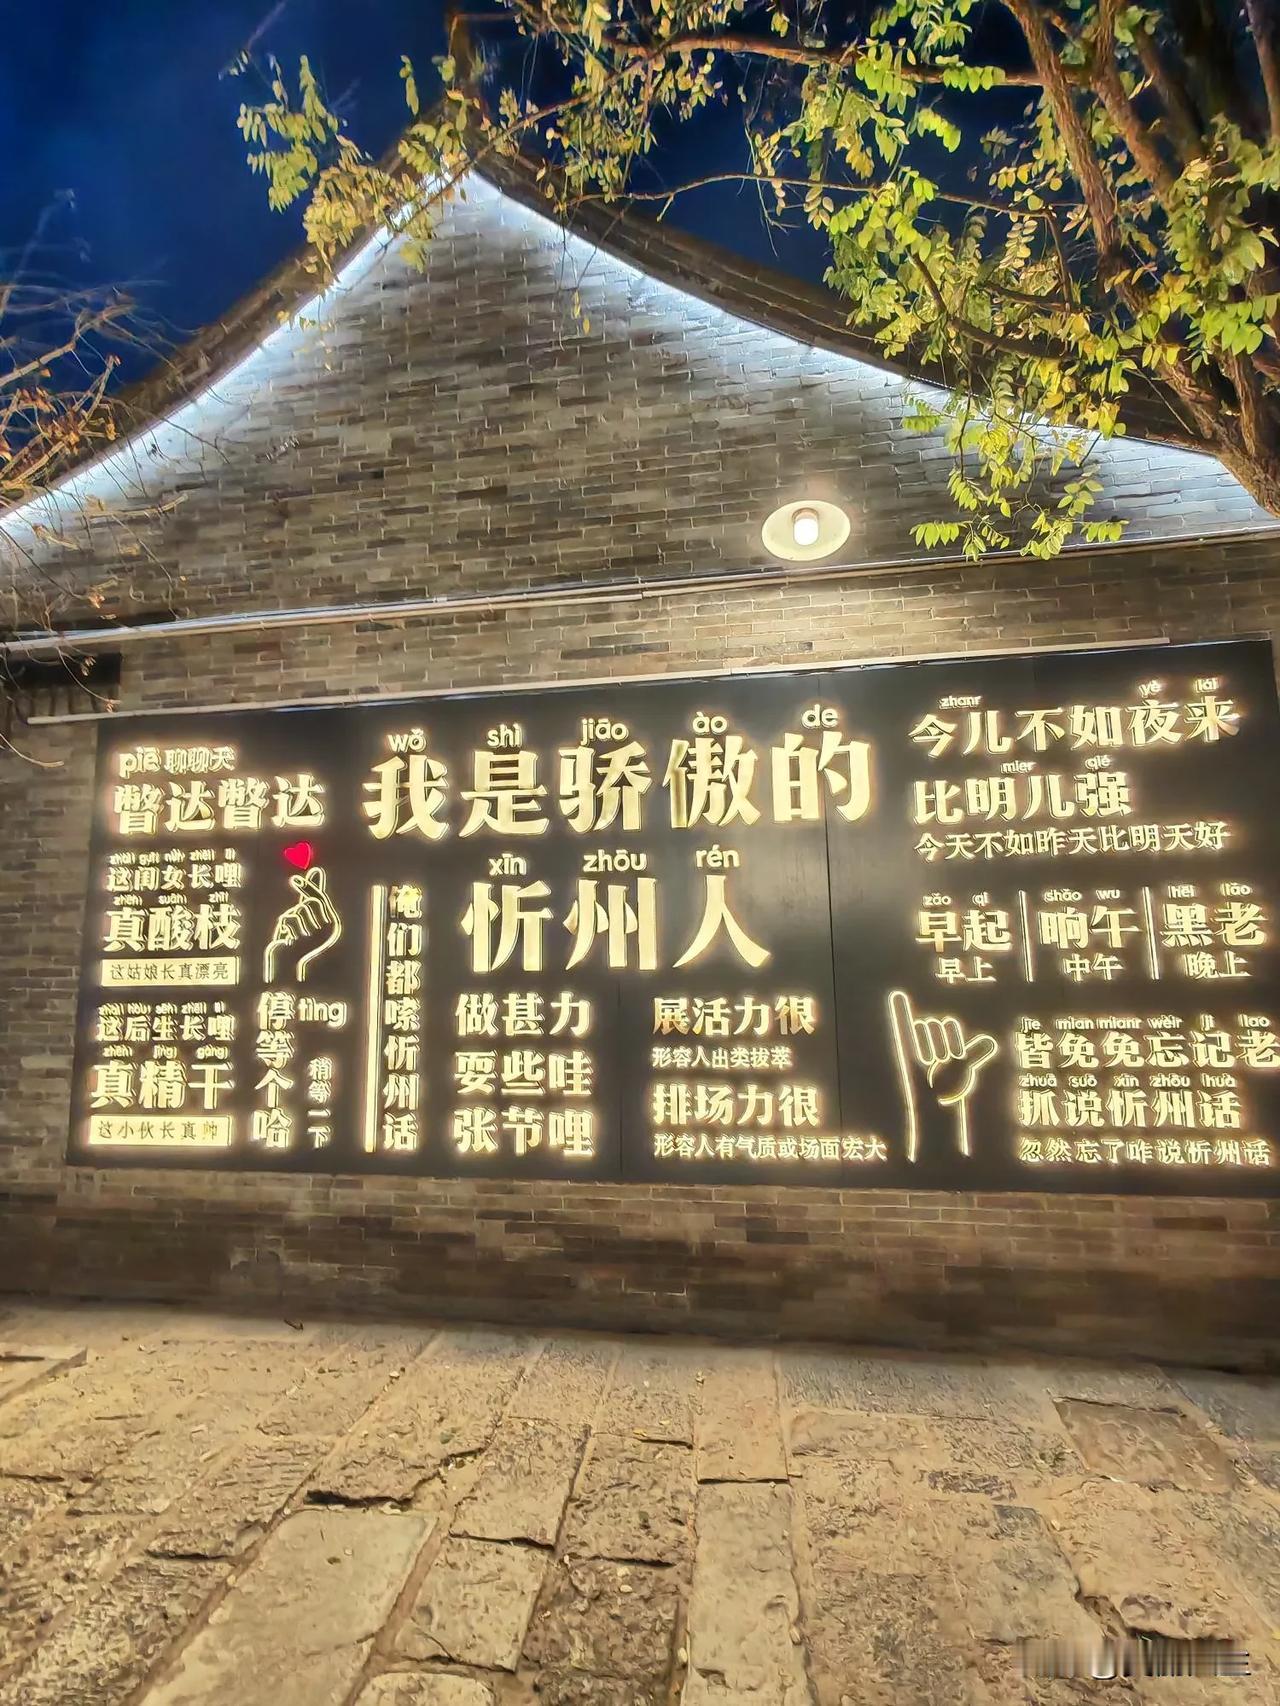 piē 聊聊天
瞥达瞥达
这闺女长哩
zhēn suān zhī
真酸枝
这姑娘长真漂亮
这后生长哩
zhēn jīng gàng
真精干
这小伙长真帅
停等个哈
tìng
稍等一下
俺们都嗦忻州话
wǒ shì jiāo ào de
我是骄傲的
xīn zhōu rén
忻州人
做甚力
耍些哇
张节哩
展活力很
形容人出类拔萃
排场力很
形容人有气质或场面宏大
zhanr yè lái
今儿不如夜来
mier qié
比明儿强
今天不如昨天比明天好
zǎo qi
早起
早上
shǎo wu
晌午
中午
hēi lǎo
黑老
晚上
jie mian mianr wèir ji lao
皆免免忘记老
zhuā suō xīn zhōu huà
抓说忻州话
忽然忘了咋说忻州话